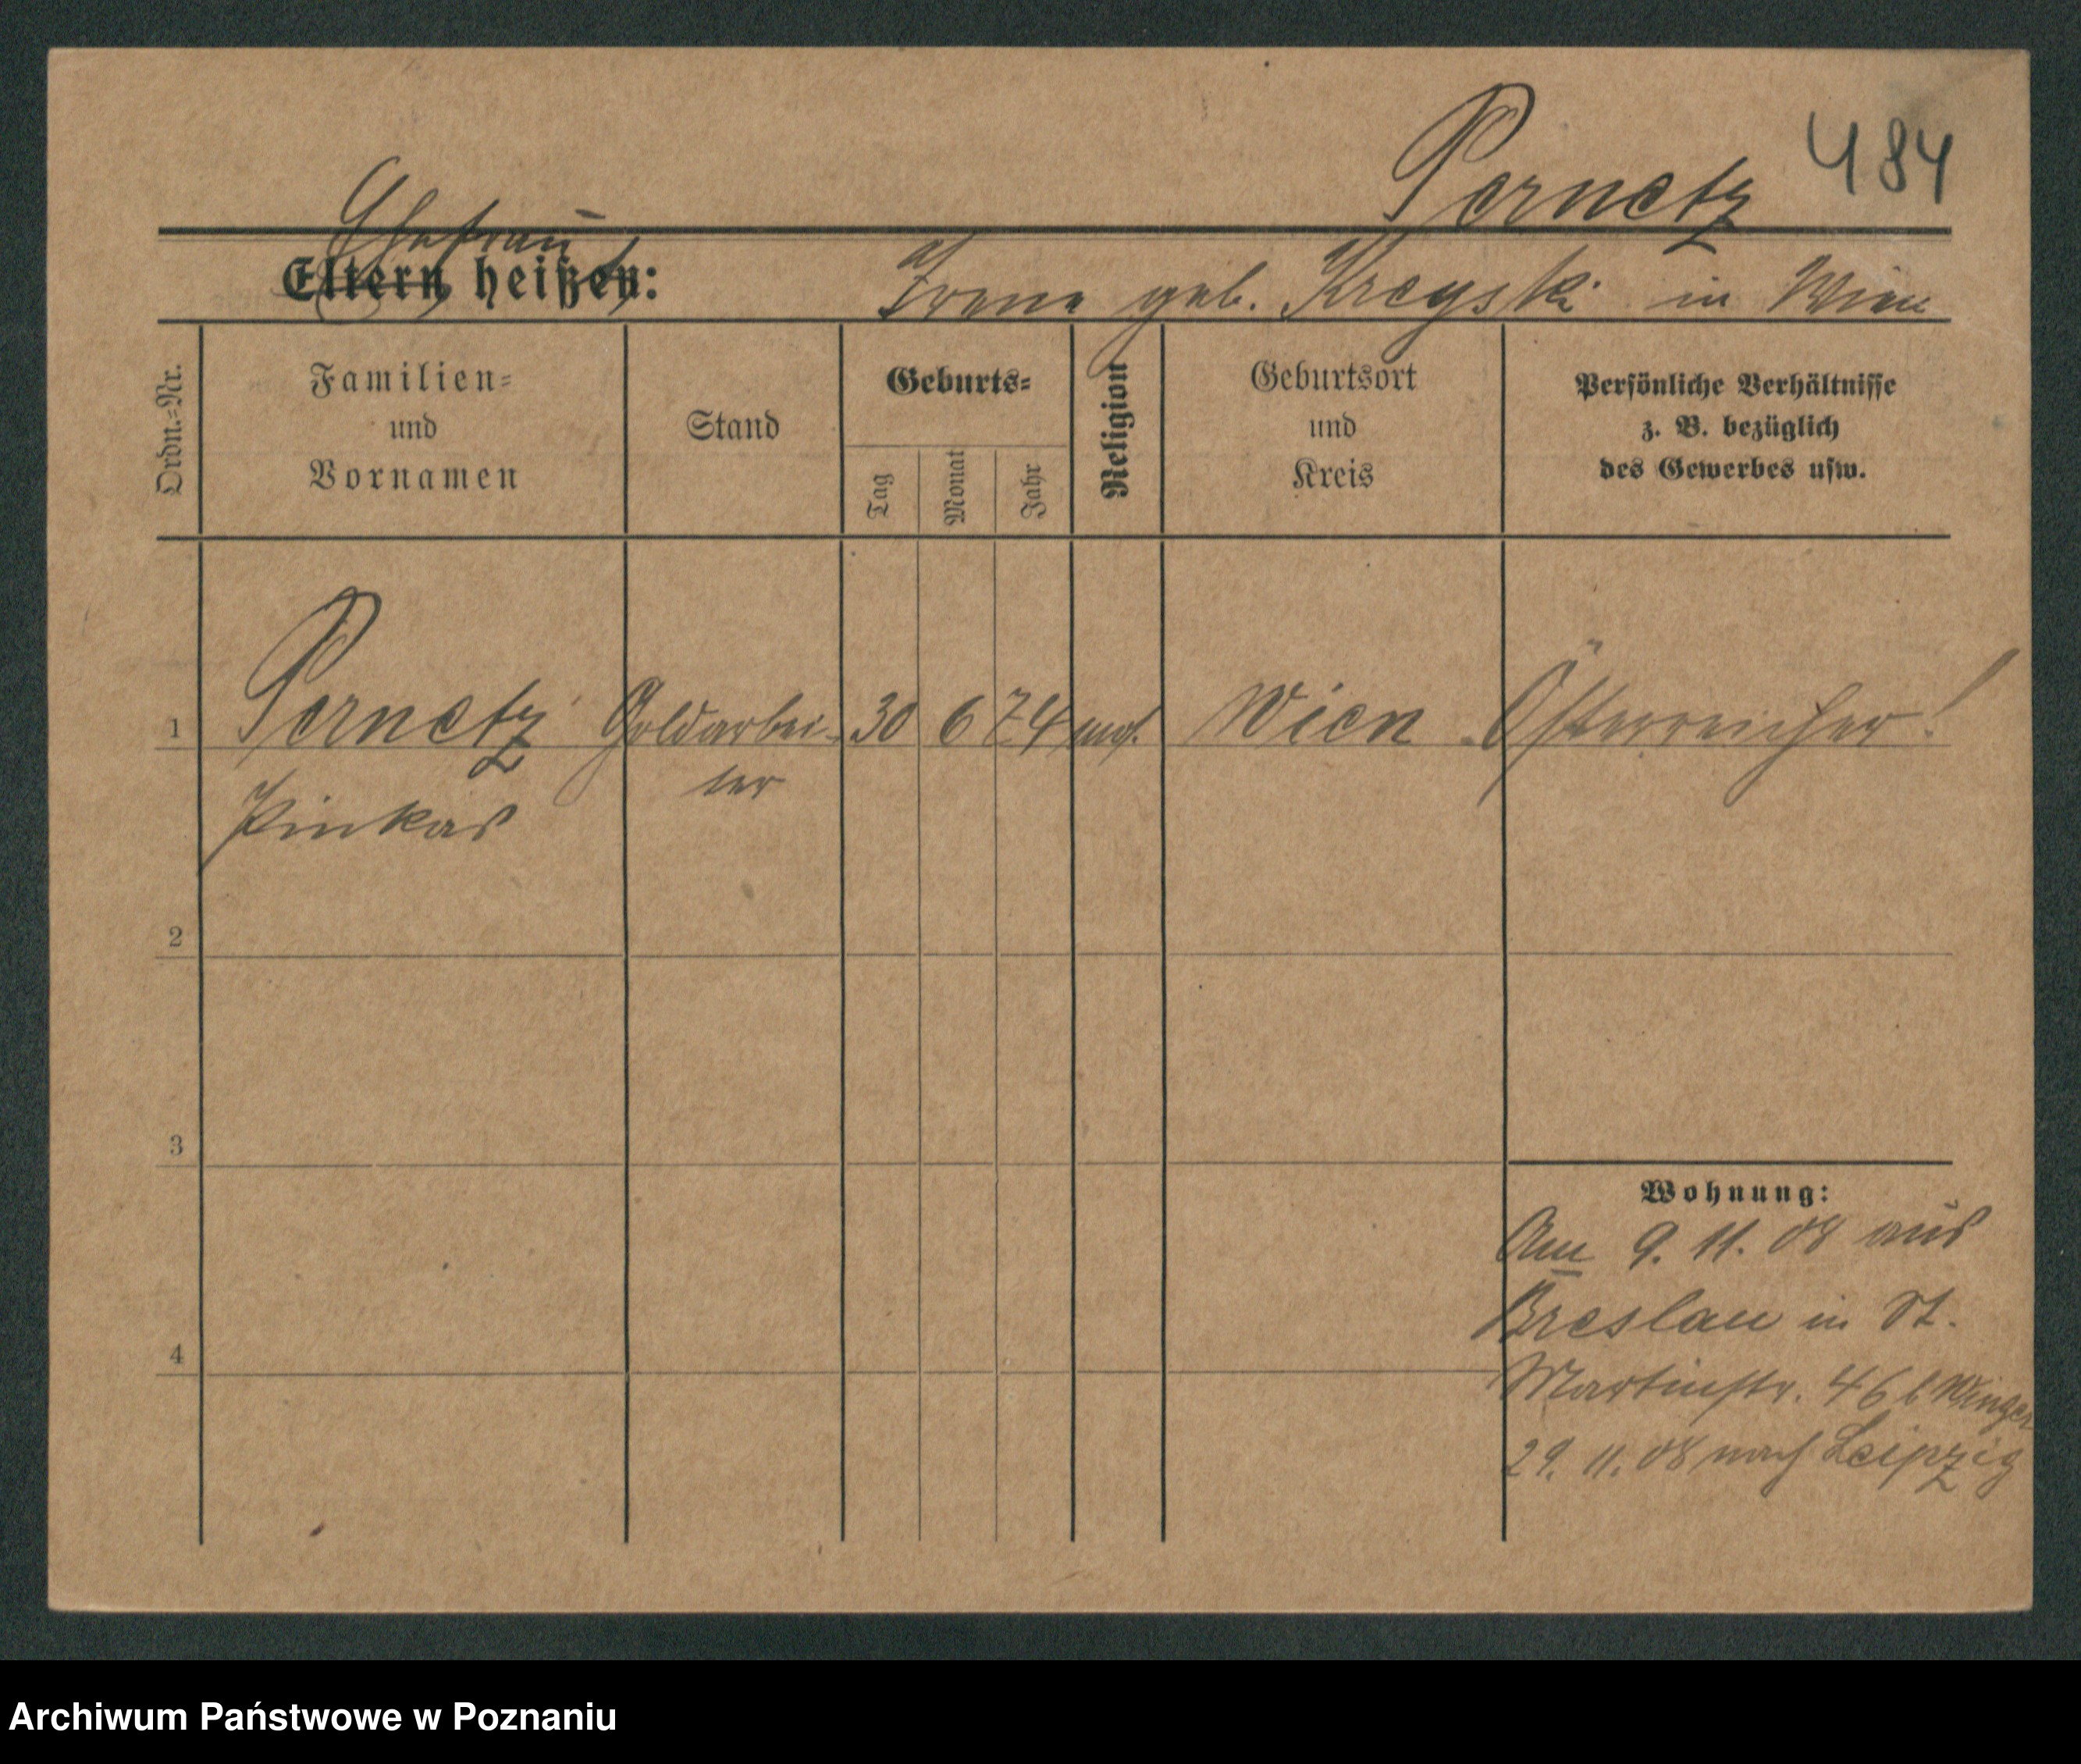 Pernetz 484
Ehefrau
Eltern heißen: Irene geb. Kreyski in Wien
Ordn.=Nr.
Familien=
und
Vornamen
Stand
Geburts=
Tag
Monat
Jahr
Religion
Geburtsort
und
Kreis
Persönliche Verhältnisse
z. B. bezüglich
des Gewerbes usw.
1 Pernetz Goldarbei- 30 6 74 mos. Wien Österreicher!
ter
Pinkas
2
3
Wohnung:
Am 9. 11. 08 aus
Breslau in St.
4
Martinstr. 46 b Winger
29. 11. 08 nach Leipzig
Archiwum Państwowe w Poznaniu